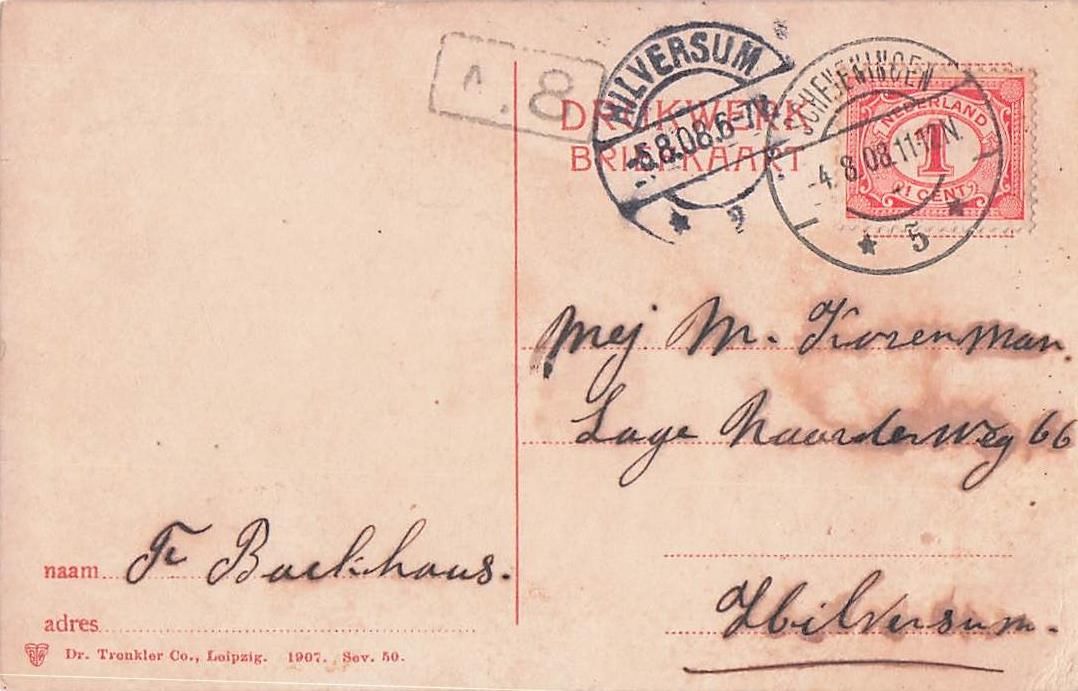 A.8
HILVERSUM
-5.8.08.6-7V.
SCHEVENINGEN
-4.8.08.11-12N.
5
NEDERLAND
1
1 CENT
DRUKWERK
BRIEFKAART
Mej M. Korenman.
Lage Naarderweg 66
Hilversum.
naam Fr Backhaus.
adres
Dr. Trenkler Co., Leipzig. 1907. Sev. 50.